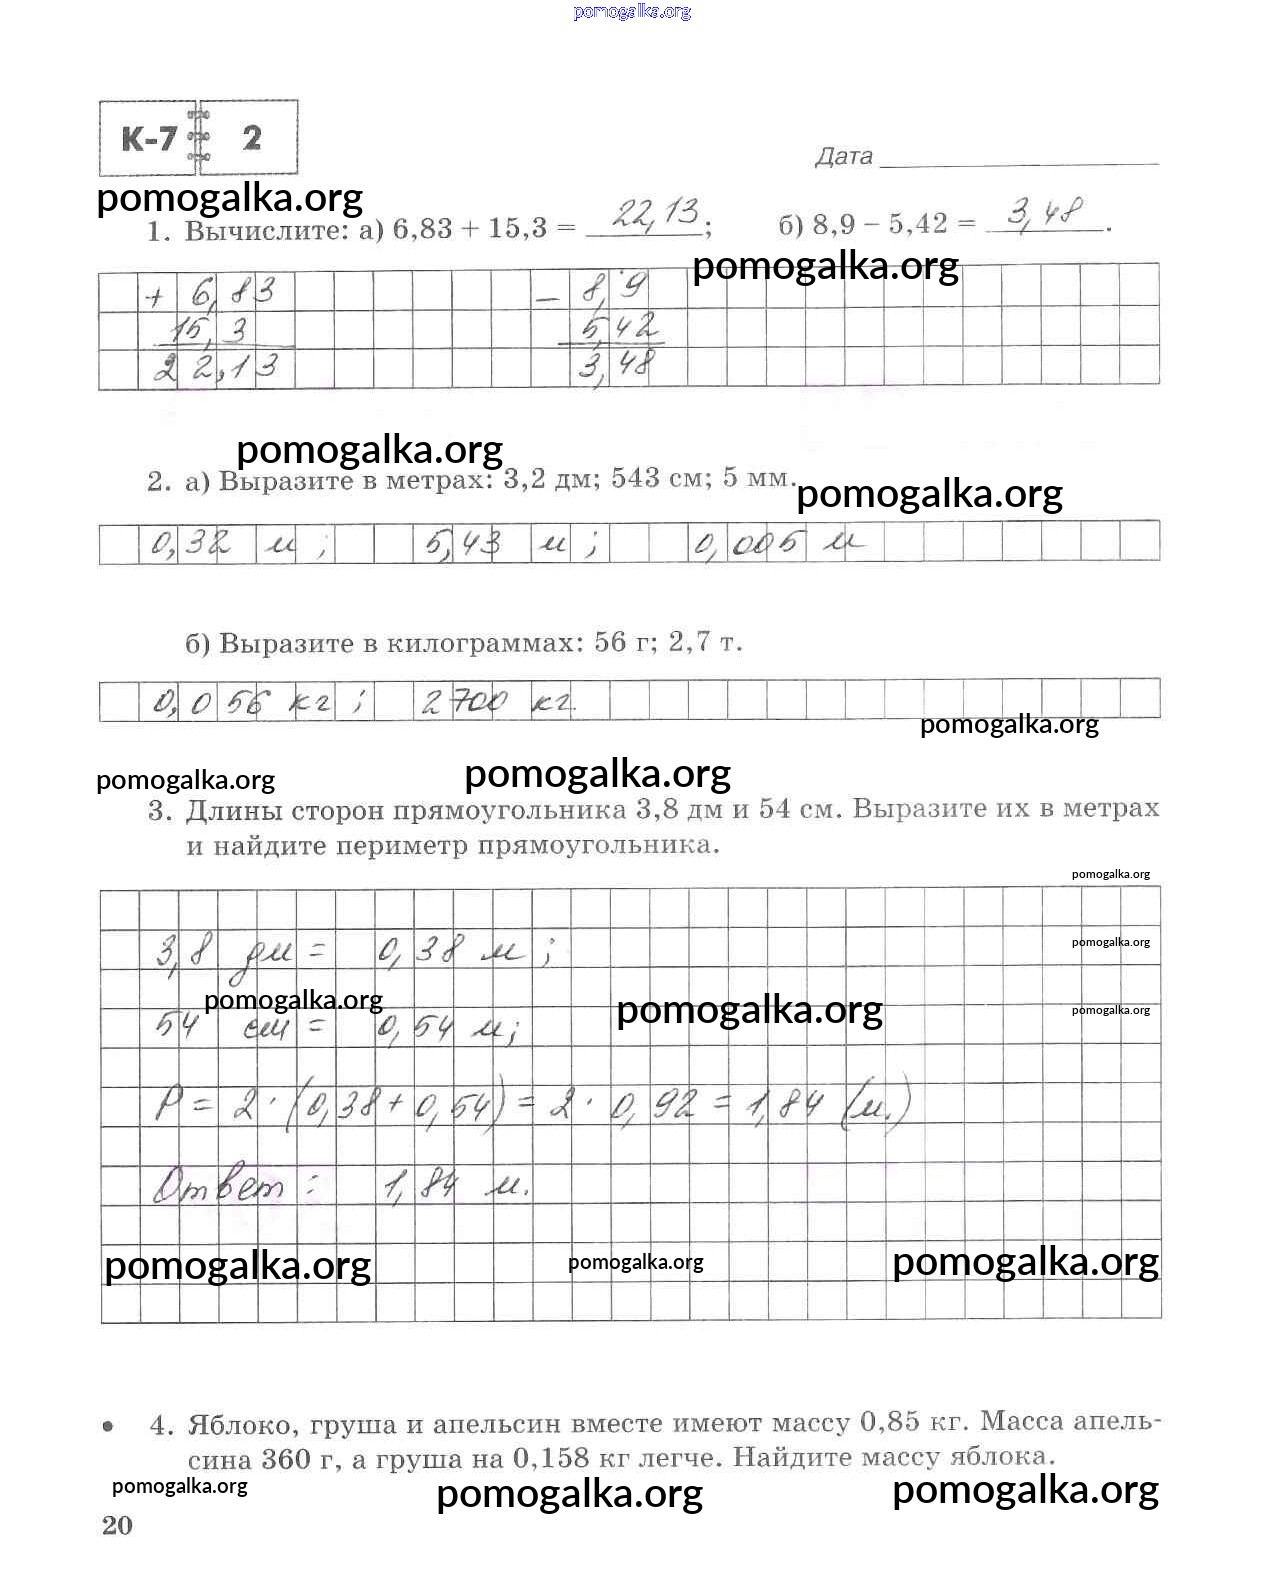 pomogalka.org
К-7 2
Дата
pomogalka.org
1. Вычислите: а) 6,83 + 15,3 = 22,13; б) 8,9 – 5,42 = 3,48.
pomogalka.org
+ 6,83 – 8,9
15,3 5,42
22,13 3,48
pomogalka.org
2. а) Выразите в метрах: 3,2 дм; 543 см; 5 мм.
pomogalka.org
0,32 м; 5,43 м; 0,005 м
б) Выразите в килограммах: 56 г; 2,7 т.
0,056 кг; 2700 кг.
pomogalka.org
pomogalka.org pomogalka.org
3. Длины сторон прямоугольника 3,8 дм и 54 см. Выразите их в метрах
и найдите периметр прямоугольника.
pomogalka.org
3,8 дм = 0,38 м;
pomogalka.org
pomogalka.org pomogalka.org pomogalka.org
54 см = 0,54 м;
P = 2 · (0,38 + 0,54) = 2 · 0,92 = 1,84 (м.)
Ответ: 1,84 м.
pomogalka.org pomogalka.org pomogalka.org
• 4. Яблоко, груша и апельсин вместе имеют массу 0,85 кг. Масса апель-
сина 360 г, а груша на 0,158 кг легче. Найдите массу яблока.
pomogalka.org pomogalka.org pomogalka.org
20